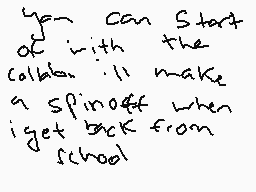 yan can start
of with the
collab ill make
a spinoff when
i get back from
school